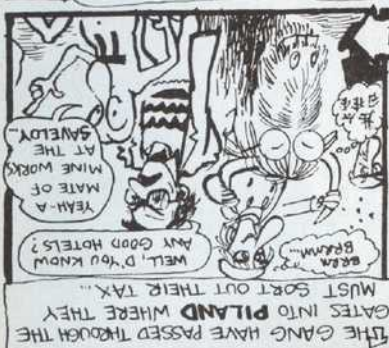 THE GANG HAVE PASSED THROUGH THE
GATES INTO PILAND WHERE THEY
MUST SORT OUT THEIR TAX...
BRRM
BRRMM...
WELL, D'YOU KNOW
ANY GOOD HOTELS?
YEAH-A
MATE OF
MINE WORKS
AT THE
SAVELOY...